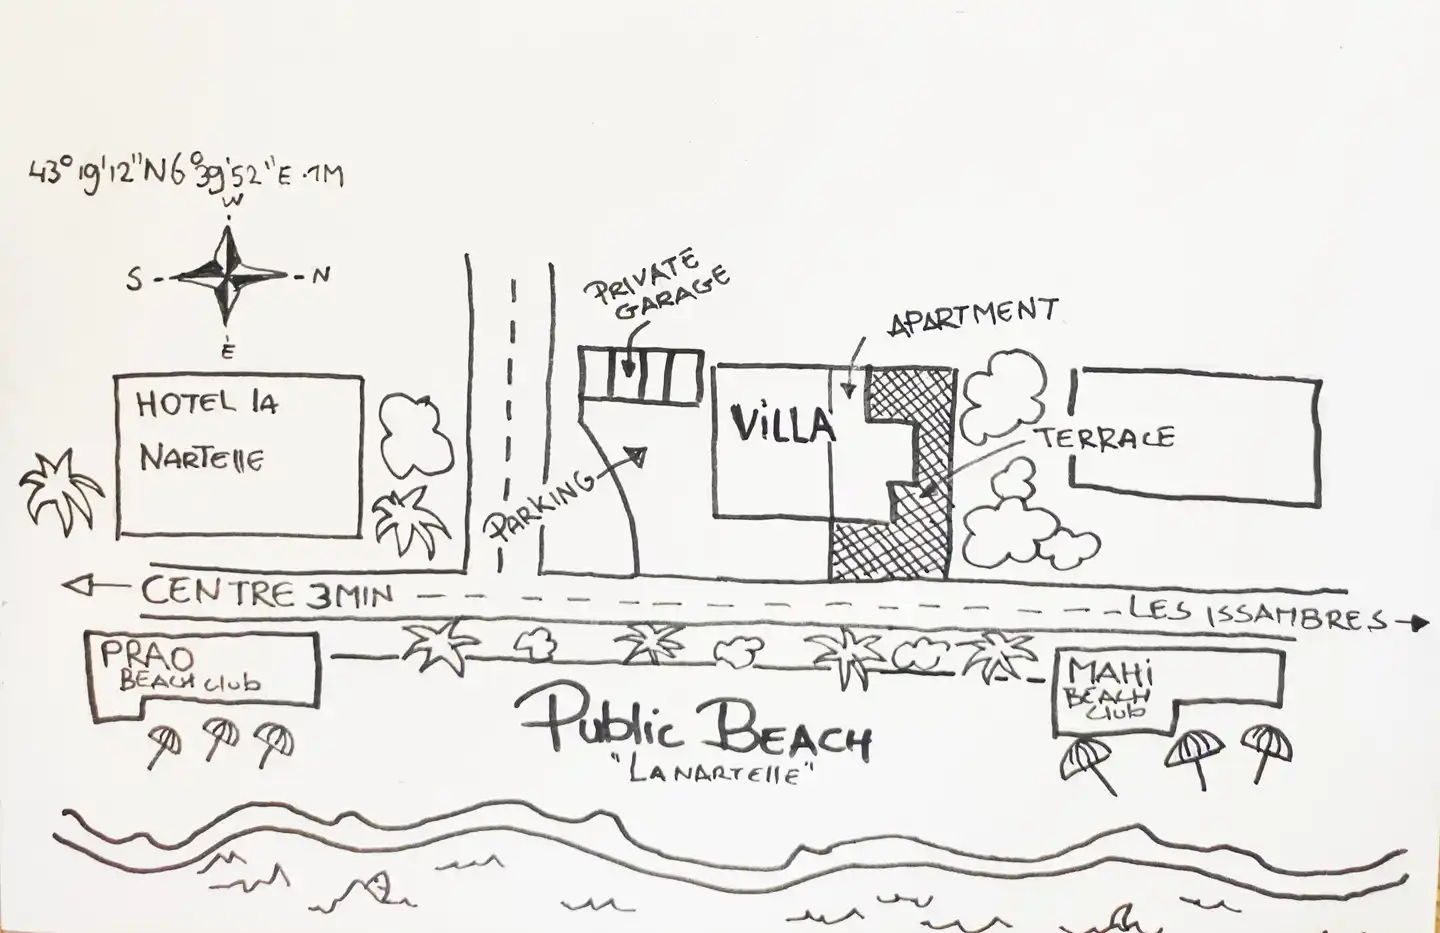 43°19'12"N6°39'52"E.1M
W
S N
E
PRIVATE
GARAGE
APARTMENT
HOTEL la
NARTElle
VillA
TERRACE
PARKING
CENTRE 3MIN
LES ISSAMBRES
PRAO
BEACH club
MAHi
BEACH
Club
Public BEACH
"LA NARTElle"